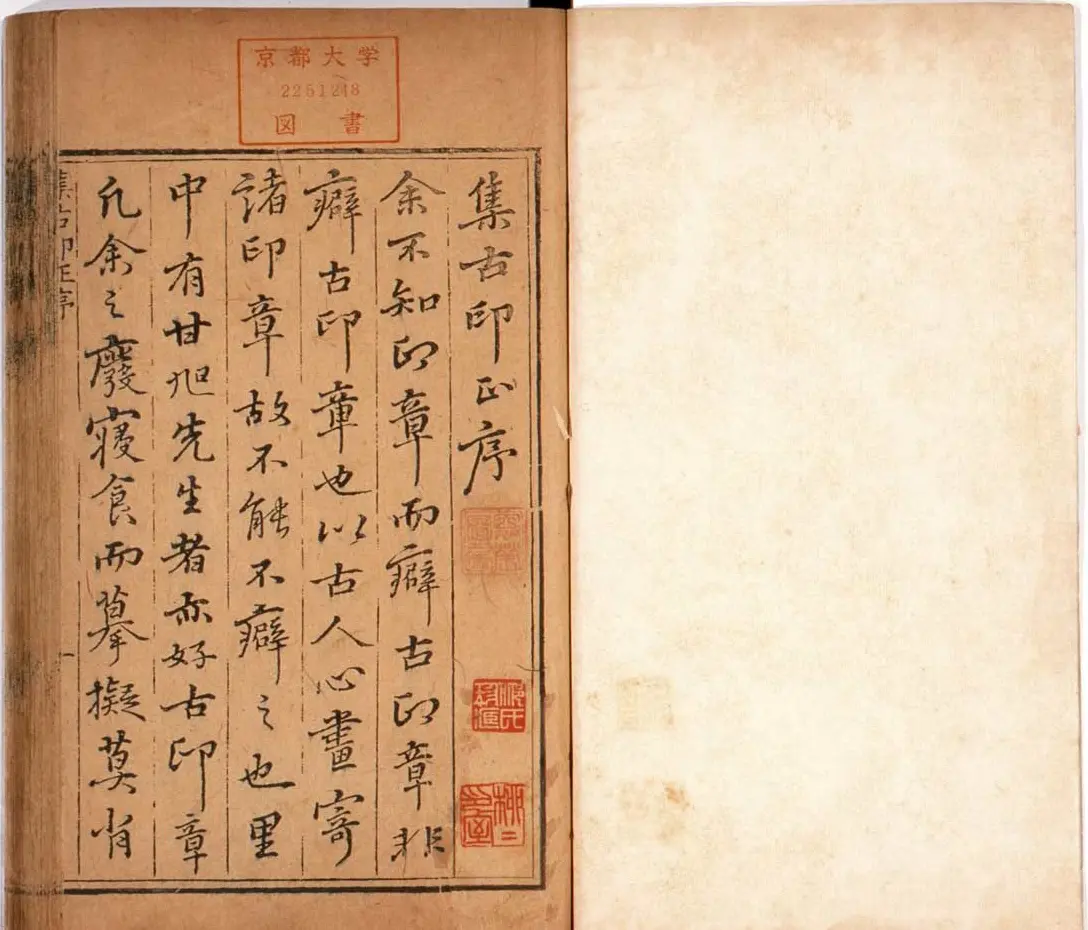 京都大学
2251248
図書
集古印正序
余不知印章而癖古印章非
癖古印章也以古人心畫寄
諸印章故不能不癖之也里
中有甘旭先生者亦好古印章
凡余之廢寢食而摹擬莫肖
集古印正序